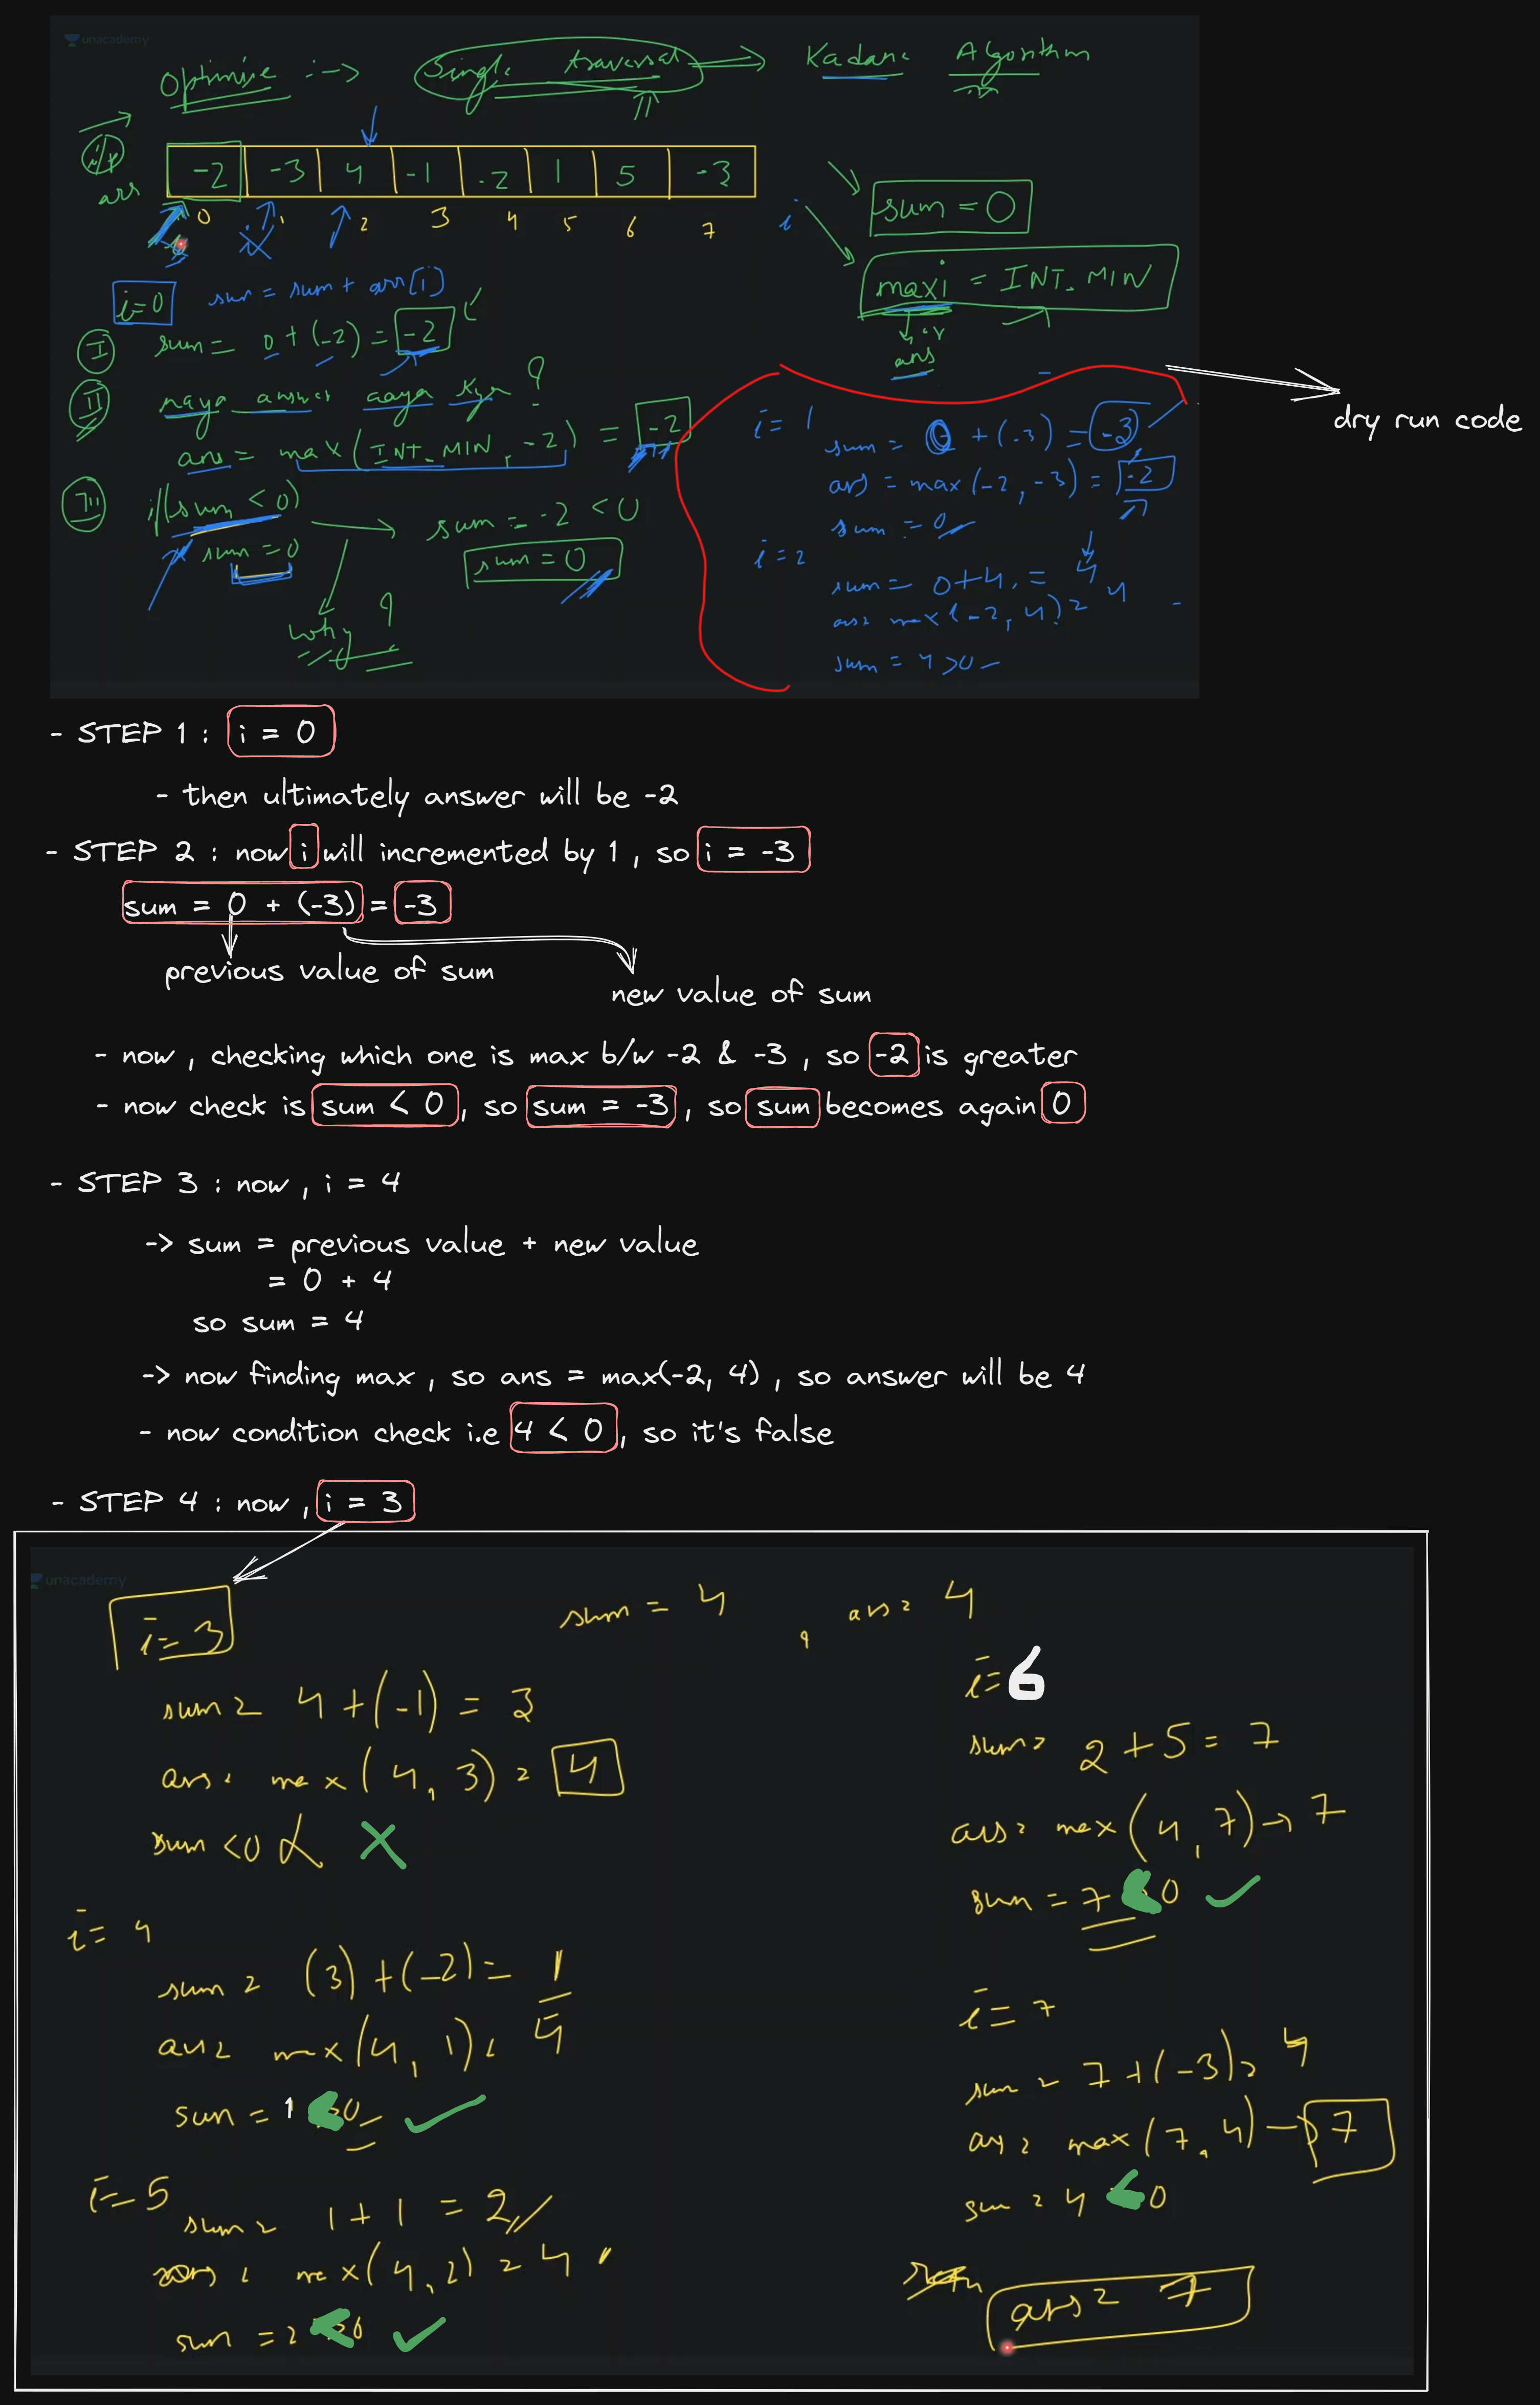 unacademy
Optimise :-> Single traversal -> Kadane Algorithm
i/p
arr
-2 -3 4 -1 -2 1 5 -3
0 1 2 3 4 5 6 7
i
sum = 0
maxi = INT_MIN
ans
i=0 sum = sum + arr[i]
I sum = 0 + (-2) = -2
II naya answer aaya kya ?
ans = max(INT_MIN, -2) = -2
III if(sum < 0)
sum = 0
sum = -2 < 0
sum = 0
why ?
i = 1
sum = 0 + (-3) = -3
ans = max(-2, -3) = -2
sum = 0
i = 2
sum = 0+4 = 4
ans = max(-2, 4) = 4
sum = 4 > 0
dry run code
- STEP 1 : i = 0
- then ultimately answer will be -2
- STEP 2 : now i will incremented by 1 , so i = -3
sum = 0 + (-3) = -3
previous value of sum
new value of sum
- now , checking which one is max b/w -2 & -3 , so -2 is greater
- now check is sum < 0 , so sum = -3 , so sum becomes again 0
- STEP 3 : now , i = 4
-> sum = previous value + new value
= 0 + 4
so sum = 4
-> now finding max , so ans = max(-2, 4) , so answer will be 4
- now condition check i.e 4 < 0 , so it's false
- STEP 4 : now , i = 3
unacademy
i = 3
sum = 4 , ans = 4
sum = 4 + (-1) = 3
ans = max(4, 3) = 4
sum < 0 X
i = 4
sum = (3) + (-2) = 1
ans = max(4, 1) = 4
sum = 1 < 0 ✓
i = 5
sum = 1 + 1 = 2
ans = max(4, 2) = 4
sum = 2 < 0 ✓
i = 6
sum = 2 + 5 = 7
ans = max(4, 7) -> 7
sum = 7 < 0 ✓
i = 7
sum = 7 + (-3) = 4
ans = max(7, 4) -> 7
sum = 4 < 0
ans = 7